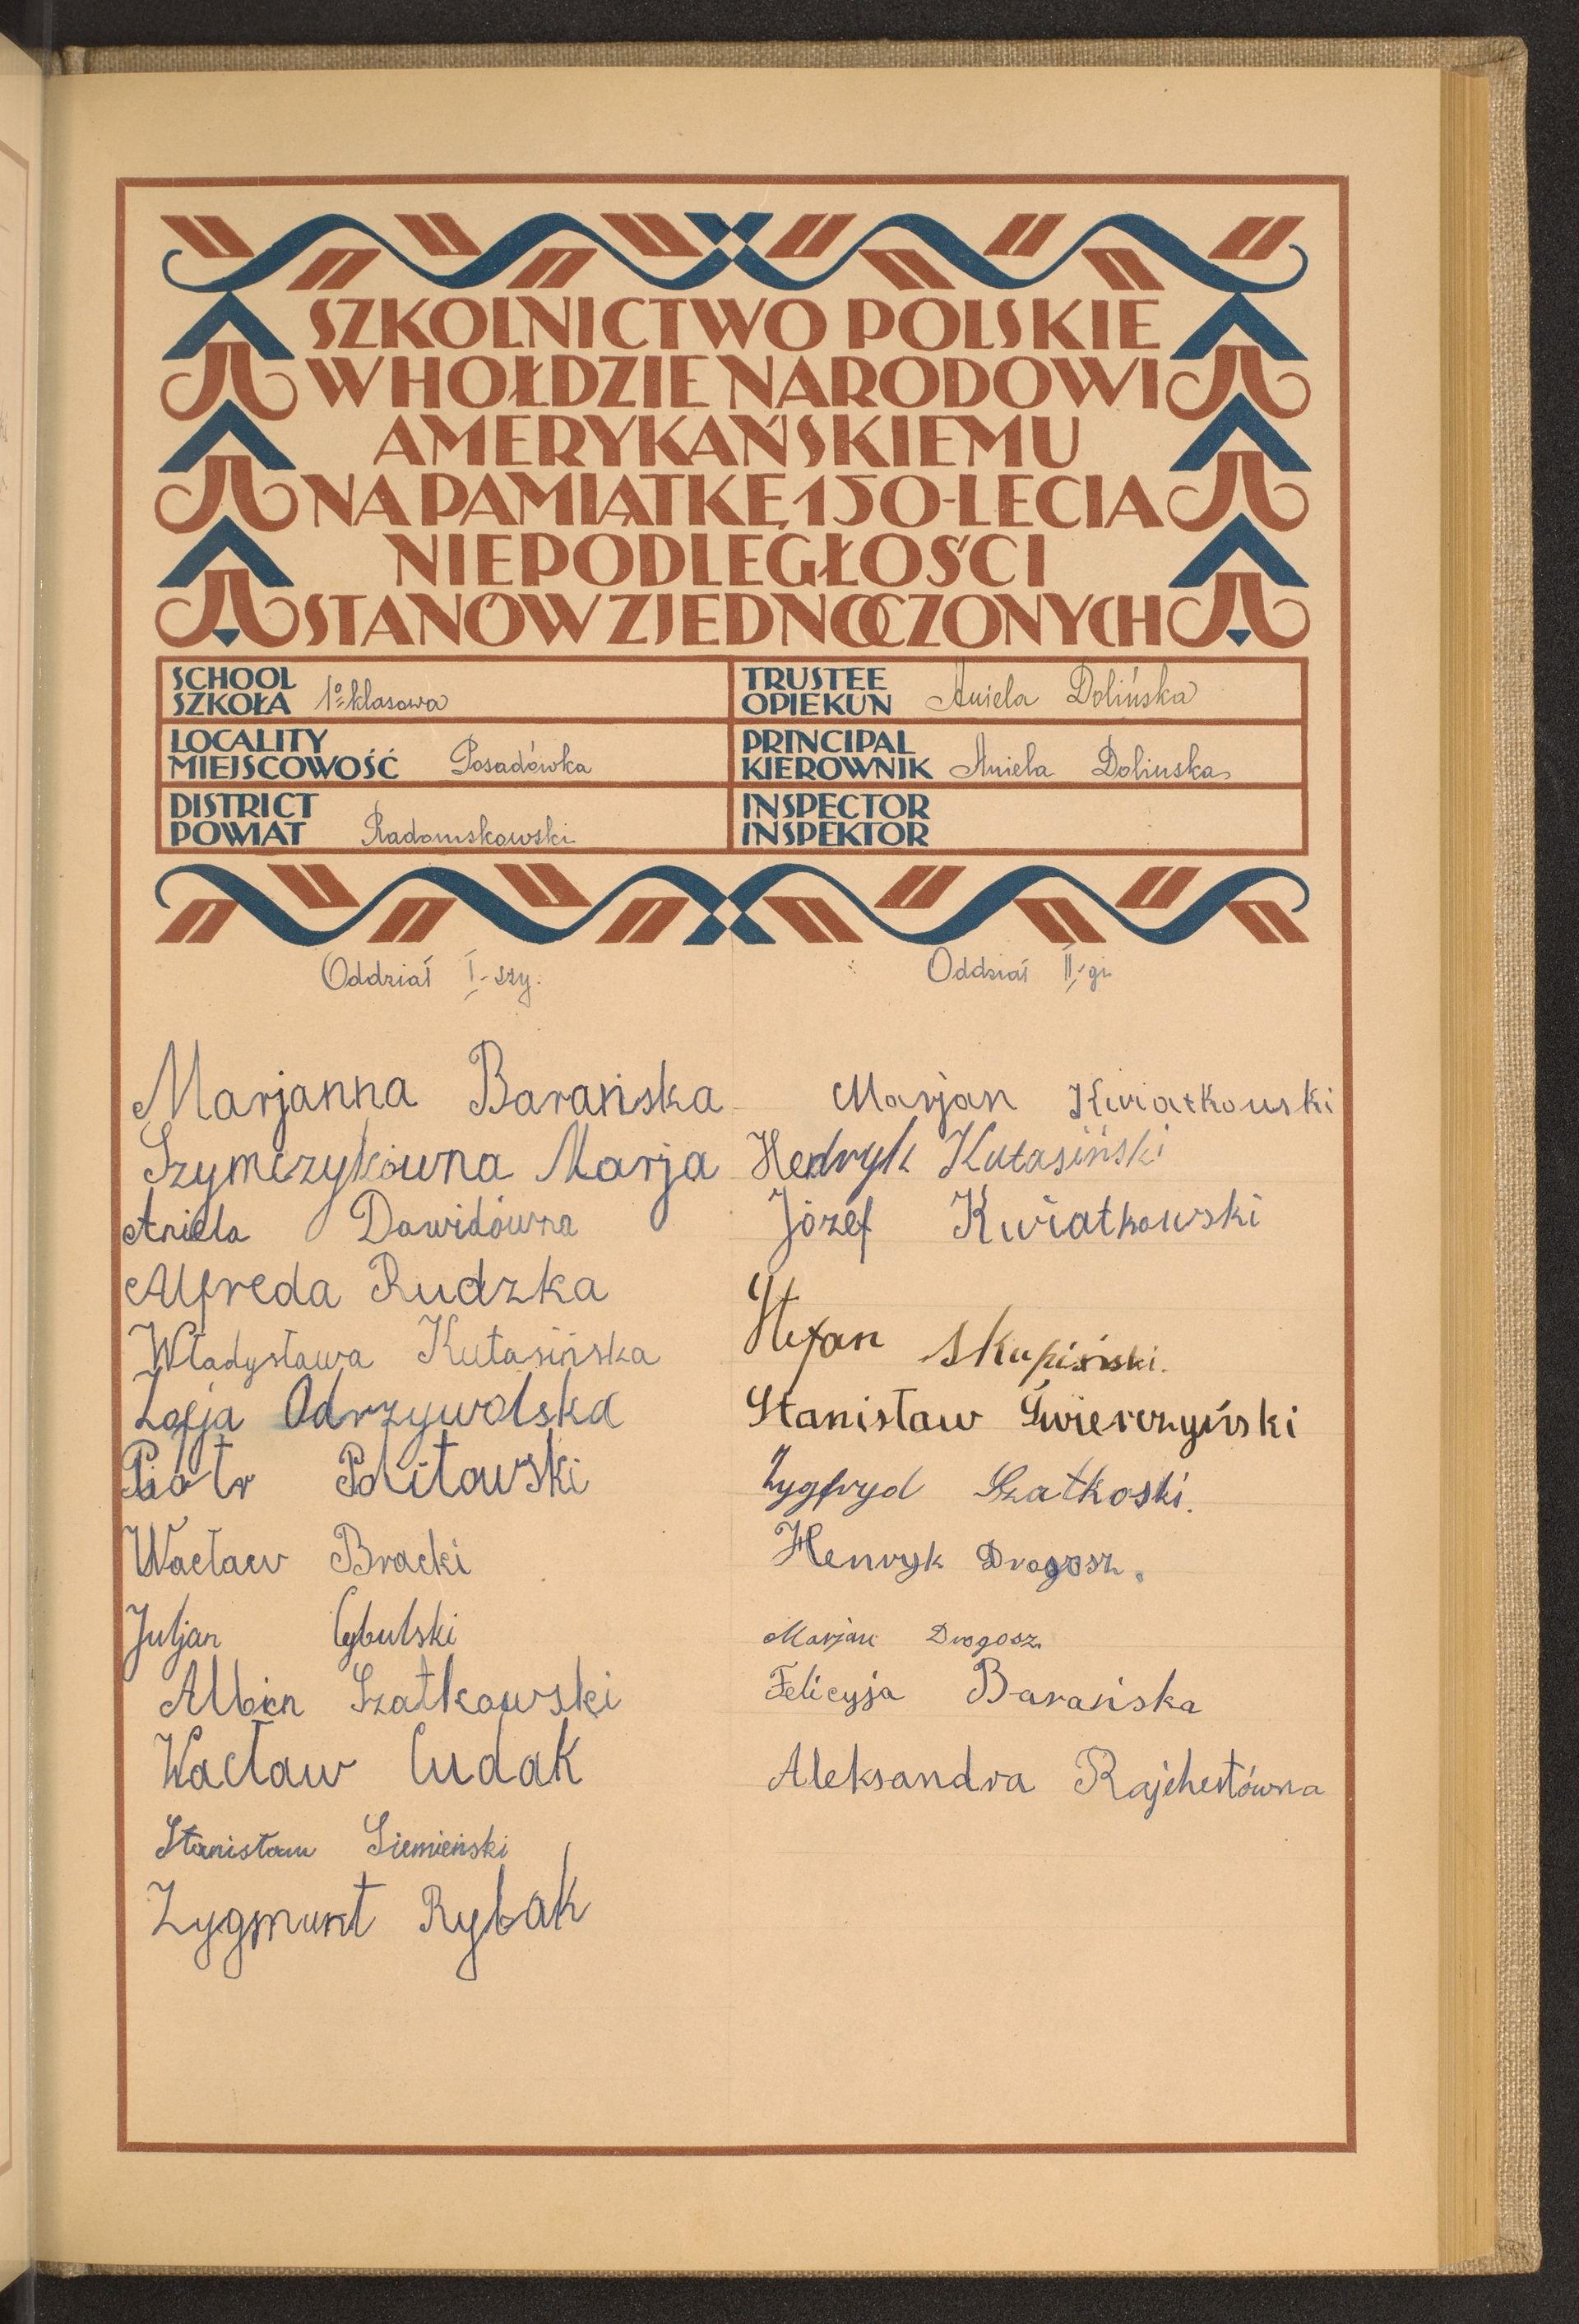 SZKOLNICTWO POLSKIE
W HOŁDZIE NARODOWI
AMERYKAŃSKIEMU
NA PAMIĄTKĘ 150-LECIA
NIEPODLEGŁOŚCI
STANÓW ZJEDNOCZONYCH
SCHOOL
SZKOŁA 1º klasowa
TRUSTEE
OPIEKUN Aniela Dolińska
LOCALITY
MIEJSCOWOŚĆ Posadówka
PRINCIPAL
KIEROWNIK Aniela Dolinska
DISTRICT
POWIAT Radomskowski
INSPECTOR
INSPEKTOR
Oddział I-szy.
Marjanna Barańska
Szymczykówna Marja
Aniela Dawidówna
Alfreda Rudzka
Władysława Kutasińska
Zofja Odrzywolska
Piotr Politowski
Wacław Bracki
Juljan Cybulski
Albin Szatkowski
Wacław Cudak
Stanisław Siemieński
Zygmunt Rybak
Oddział II-gi
Marjan Kwiatkowski
Hedryk Kutasiński
Józef Kwiatkowski
Stefan Skupiński.
Stanisław Świerczyński
Zygfryd Szatkoski.
Henryk Drogosz.
Marjan Drogosz
Felicyja Barańska
Aleksandra Rajchertówna